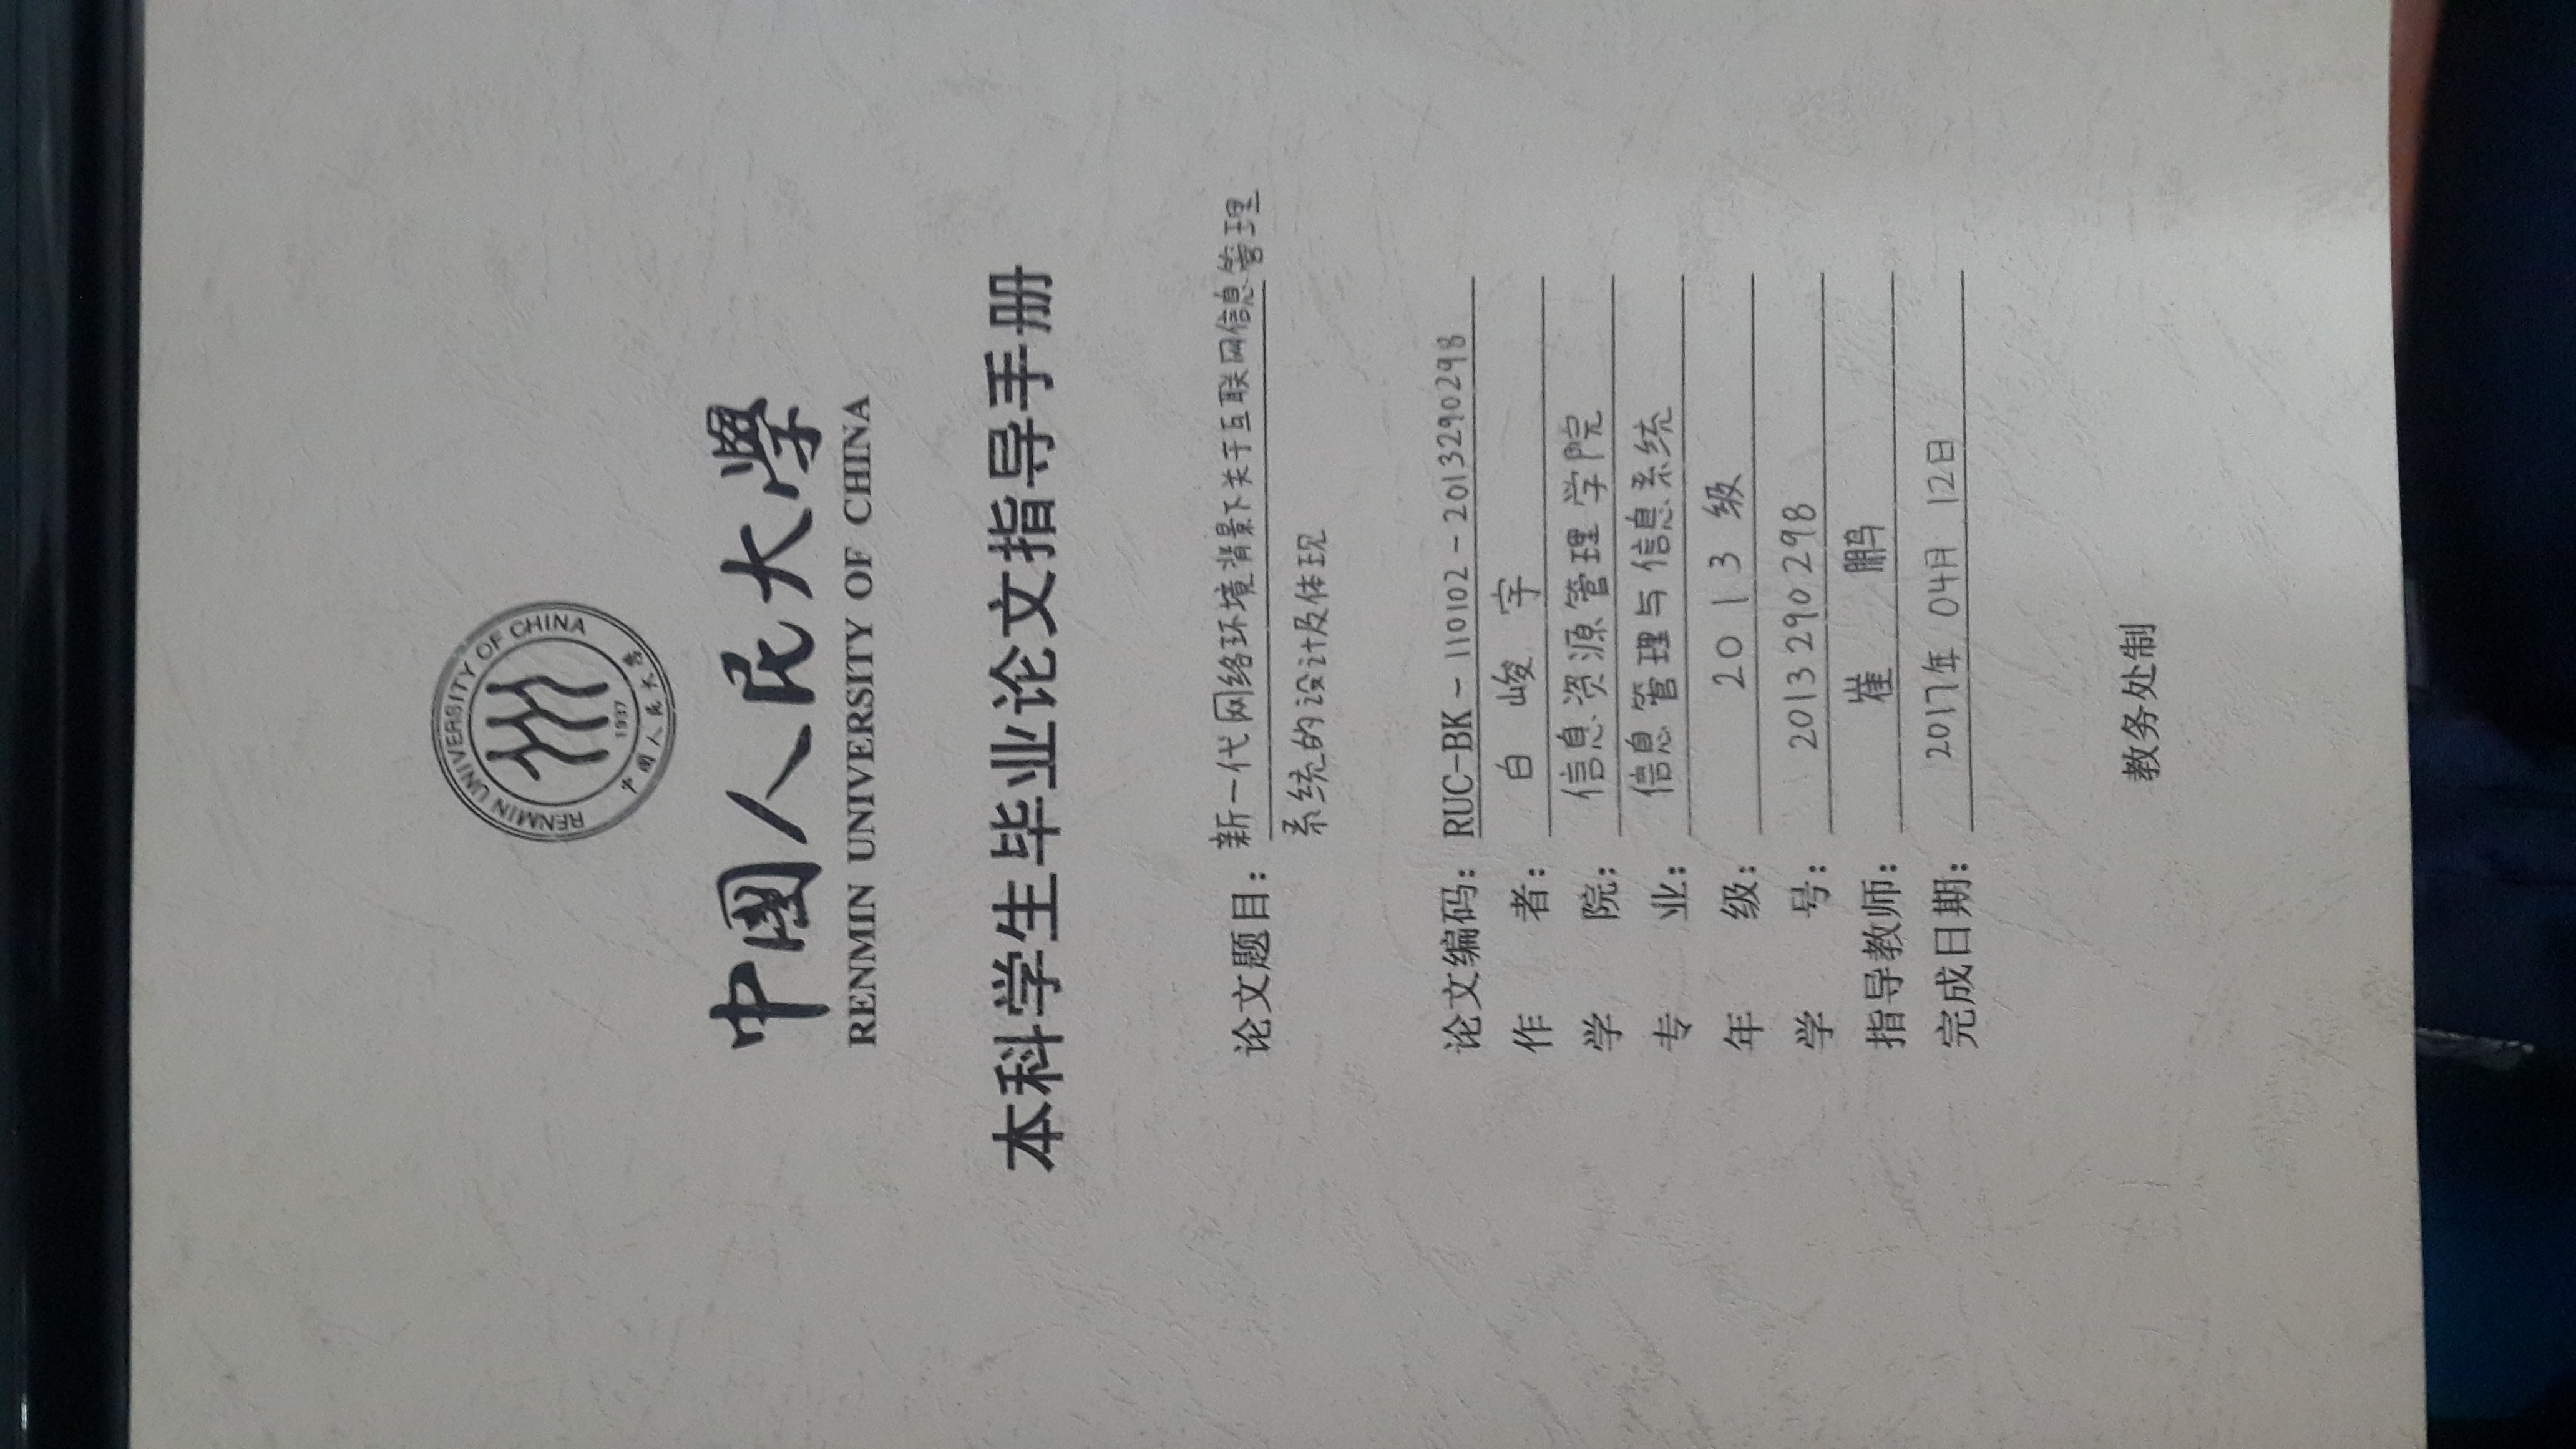 RENMIN UNIVERSITY OF CHINA
1937
中国人民大学
中國人民大學
RENMIN UNIVERSITY OF CHINA
本科学生毕业论文指导手册
论文题目：新一代网络环境背景下关于互联网信息管理
系统的设计及体现
论文编码：RUC-BK-110102-2013290298
作者：白峻宇
学院：信息资源管理学院
专业：信息管理与信息系统
年级：2013级
学号：2013290298
指导教师：崔鹏
完成日期：2017年04月12日
教务处制